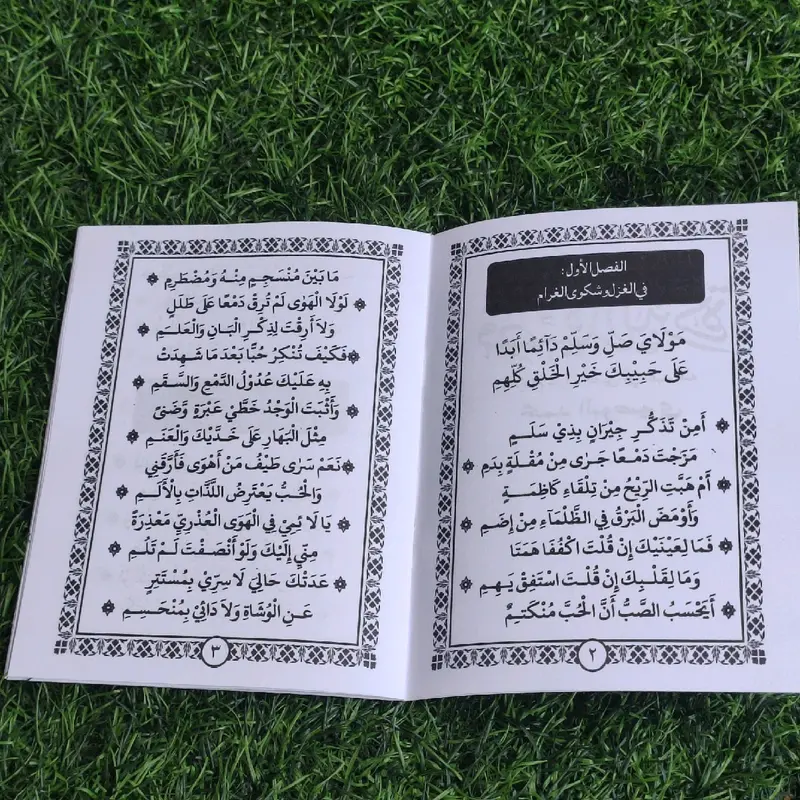 الفصل الأول:
في الغزل وشكوى الغرام
مَوْلَايَ صَلِّ وَسَلِّمْ دَآئِمًا أَبَدًا
عَلَى حَبِيْبِكَ خَيْرِ الْخَلْقِ كُلِّهِمِ
أَمِنْ تَذَكُّرِ جِيْرَانٍ بِذِيْ سَلَمِ
مَزَجْتَ دَمْعًا جَرَى مِنْ مُقْلَةٍ بِدَمِ
أَمْ هَبَّتِ الرِّيْحُ مِنْ تِلْقَاءِ كَاظِمَةٍ
وَأَوْمَضَ الْبَرْقُ فِي الظَّلْمَاءِ مِنْ إِضَمِ
فَمَا لِعَيْنَيْكَ إِنْ قُلْتَ اكْفُفَا هَمَتَا
وَمَا لِقَلْبِكَ إِنْ قُلْتَ اسْتَفِقْ يَهِمِ
أَيَحْسَبُ الصَّبُّ أَنَّ الْحُبَّ مُنْكَتِمٌ
٢
مَا بَيْنَ مُنْسَجِمٍ مِنْهُ وَمُضْطَرِمِ
لَوْلَا الْهَوٰى لَمْ تُرِقْ دَمْعًا عَلَى طَلَلٍ
وَلَا أَرِقْتَ لِذِكْرِ الْبَانِ وَالْعَلَمِ
فَكَيْفَ تُنْكِرُ حُبًّا بَعْدَ مَا شَهِدَتْ
بِهِ عَلَيْكَ عُدُوْلُ الدَّمْعِ وَالسَّقَمِ
وَأَثْبَتَ الْوَجْدُ خَطَّيْ عَبْرَةٍ وَضَنًى
مِثْلَ الْبَهَارِ عَلَى خَدَّيْكَ وَالْعَنَمِ
نَعَمْ سَرٰى طَيْفُ مَنْ أَهْوَى فَأَرَّقَنِي
وَالْحُبُّ يَعْتَرِضُ اللَّذَّاتِ بِالْأَلَمِ
يَا لَائِمِيْ فِي الْهَوَى الْعُذْرِيِّ مَعْذِرَةً
مِنِّي إِلَيْكَ وَلَوْ أَنْصَفْتَ لَمْ تَلُمِ
عَدَتْكَ حَالِيَ لَا سِرِّيْ بِمُسْتَتِرٍ
عَنِ الْوُشَاةِ وَلَا دَائِيْ بِمُنْحَسِمِ
٣